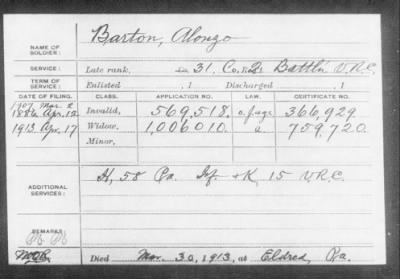 NAME OF SOLDIER:
Barton, Alonzo
SERVICE:
Late rank, 31, Co. 2 Battln V.R.C.
TERM OF SERVICE:
Enlisted , 1 Discharged , 1
DATE OF FILING. CLASS. APPLICATION NO. LAW. CERTIFICATE NO.
1907 Mar 2
1886 Apr. 12 Invalid, 569,518. of age 366,929
1913, Apr. 17 Widow, 1,006,010. 759,720.
Minor,
ADDITIONAL SERVICES:
H, 58 Pa. Inf. & K, 15 V.R.C.
REMARKS:
Died Mar. 30, 1913, at Eldred, Pa.